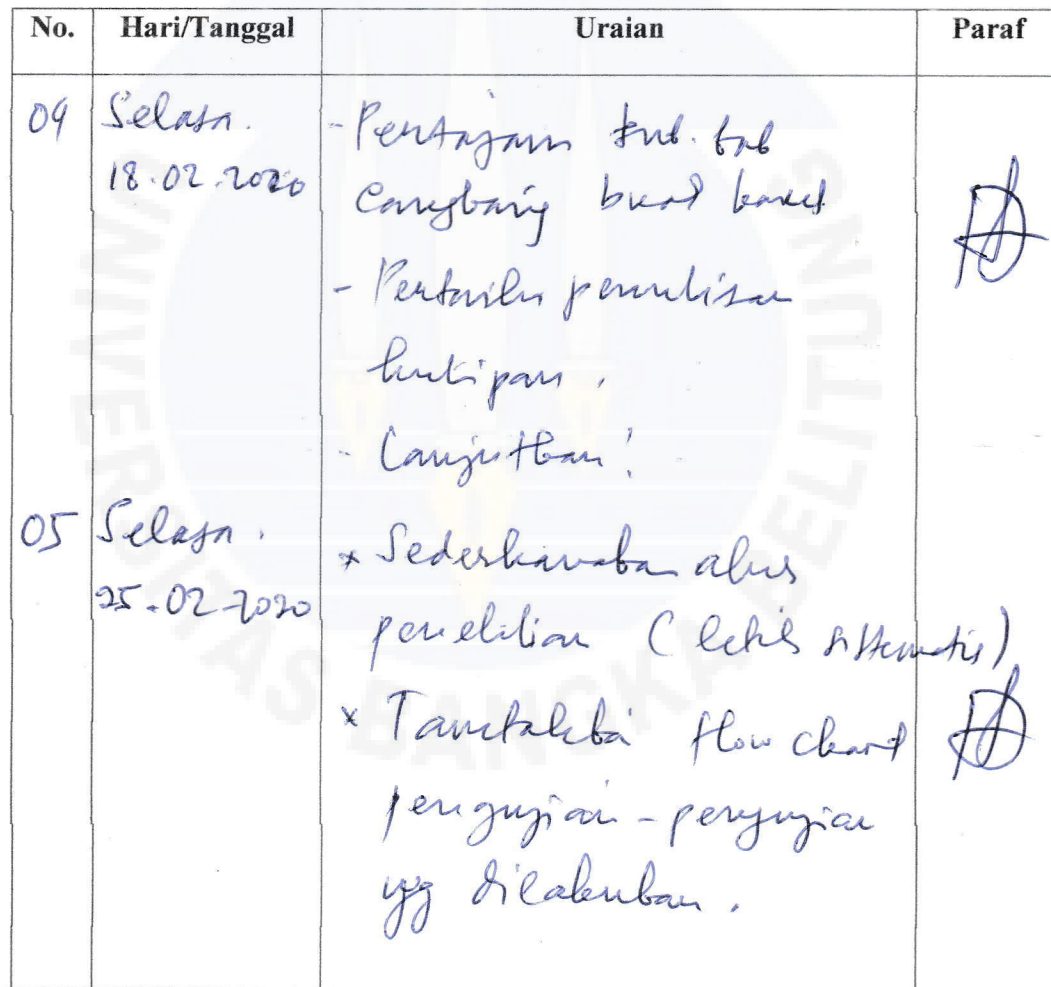 No. Hari/Tanggal Uraian Paraf
04 Selasa. - Pertajam sub. bab
18.02.2020 Cangkang buat karet
- Perbaiki penulisan
kutipan.
- Lanjutkan!
05 Selasa. * Sederhanakan alur
25.02.2020 penelitian (lebih sistematis)
* Tambahkan flow chart
pengujian - pengujian
yg dilakukan.
UNIVERSITAS BANGKA BELITUNG